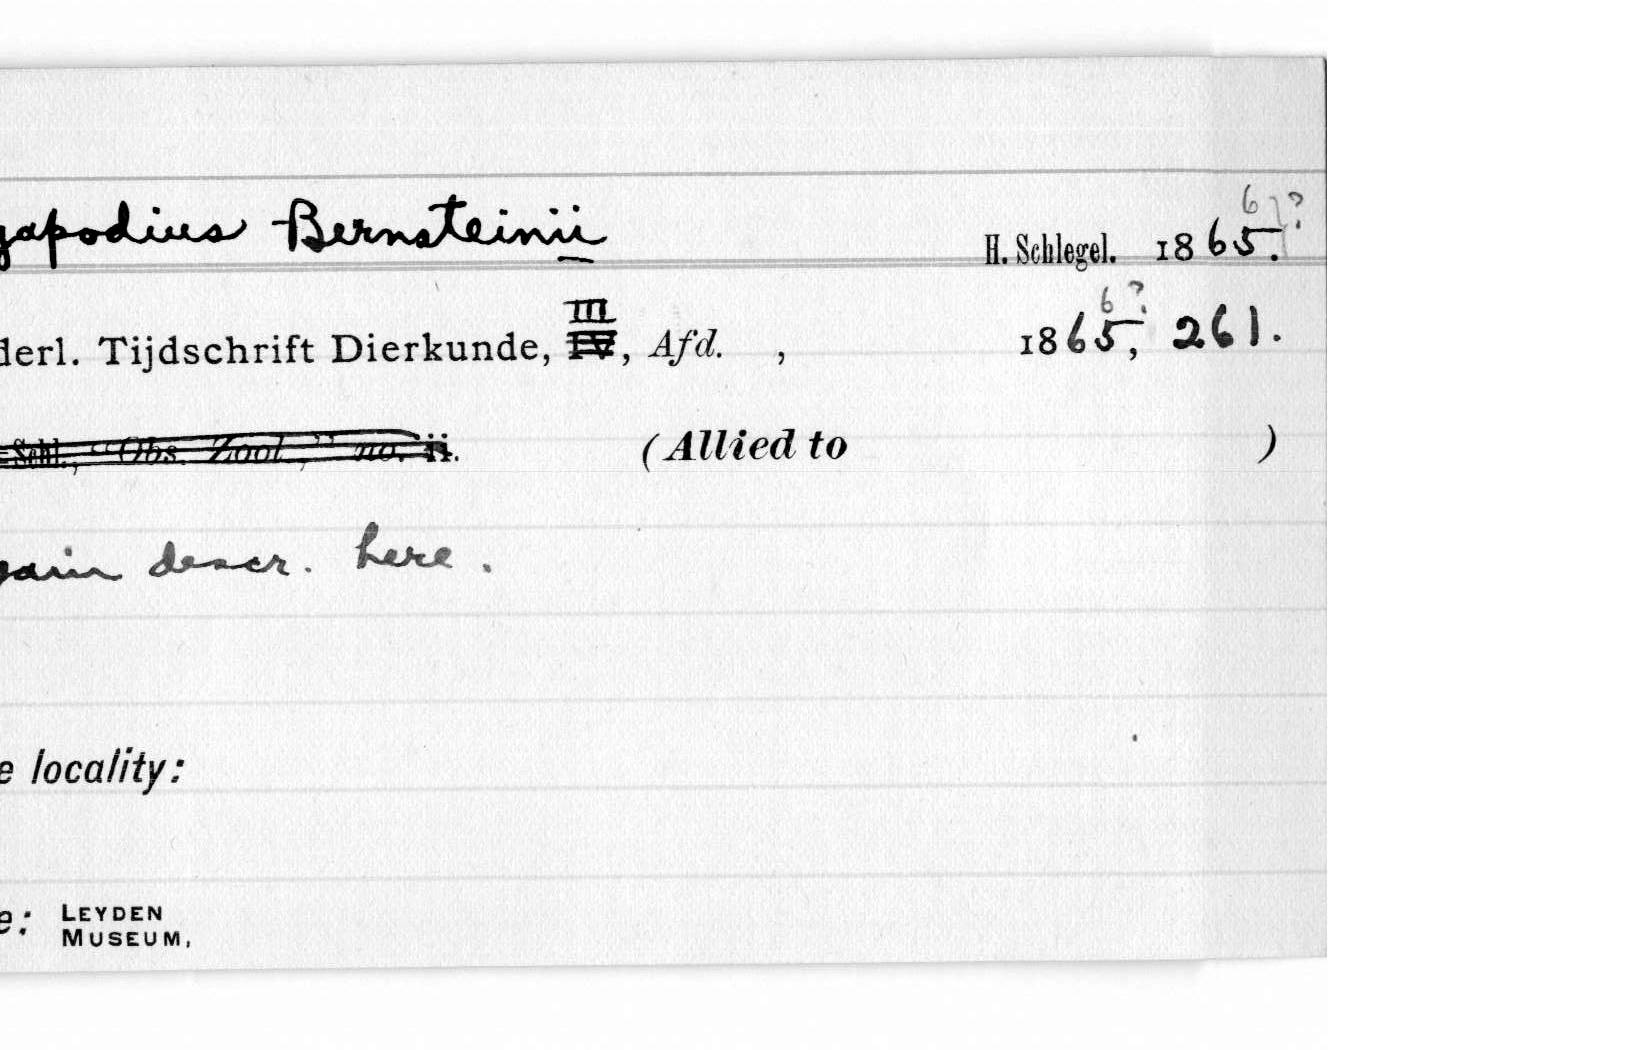 gapodius Bernsteinii H. Schlegel. 1865. 6?
derl. Tijdschrift Dierkunde, III IV, Afd. , 1865, 6? 261.
Schl., "Obs. Zool," no. ii. (Allied to )
gain descr. here.
e locality:
e: LEYDEN
MUSEUM,